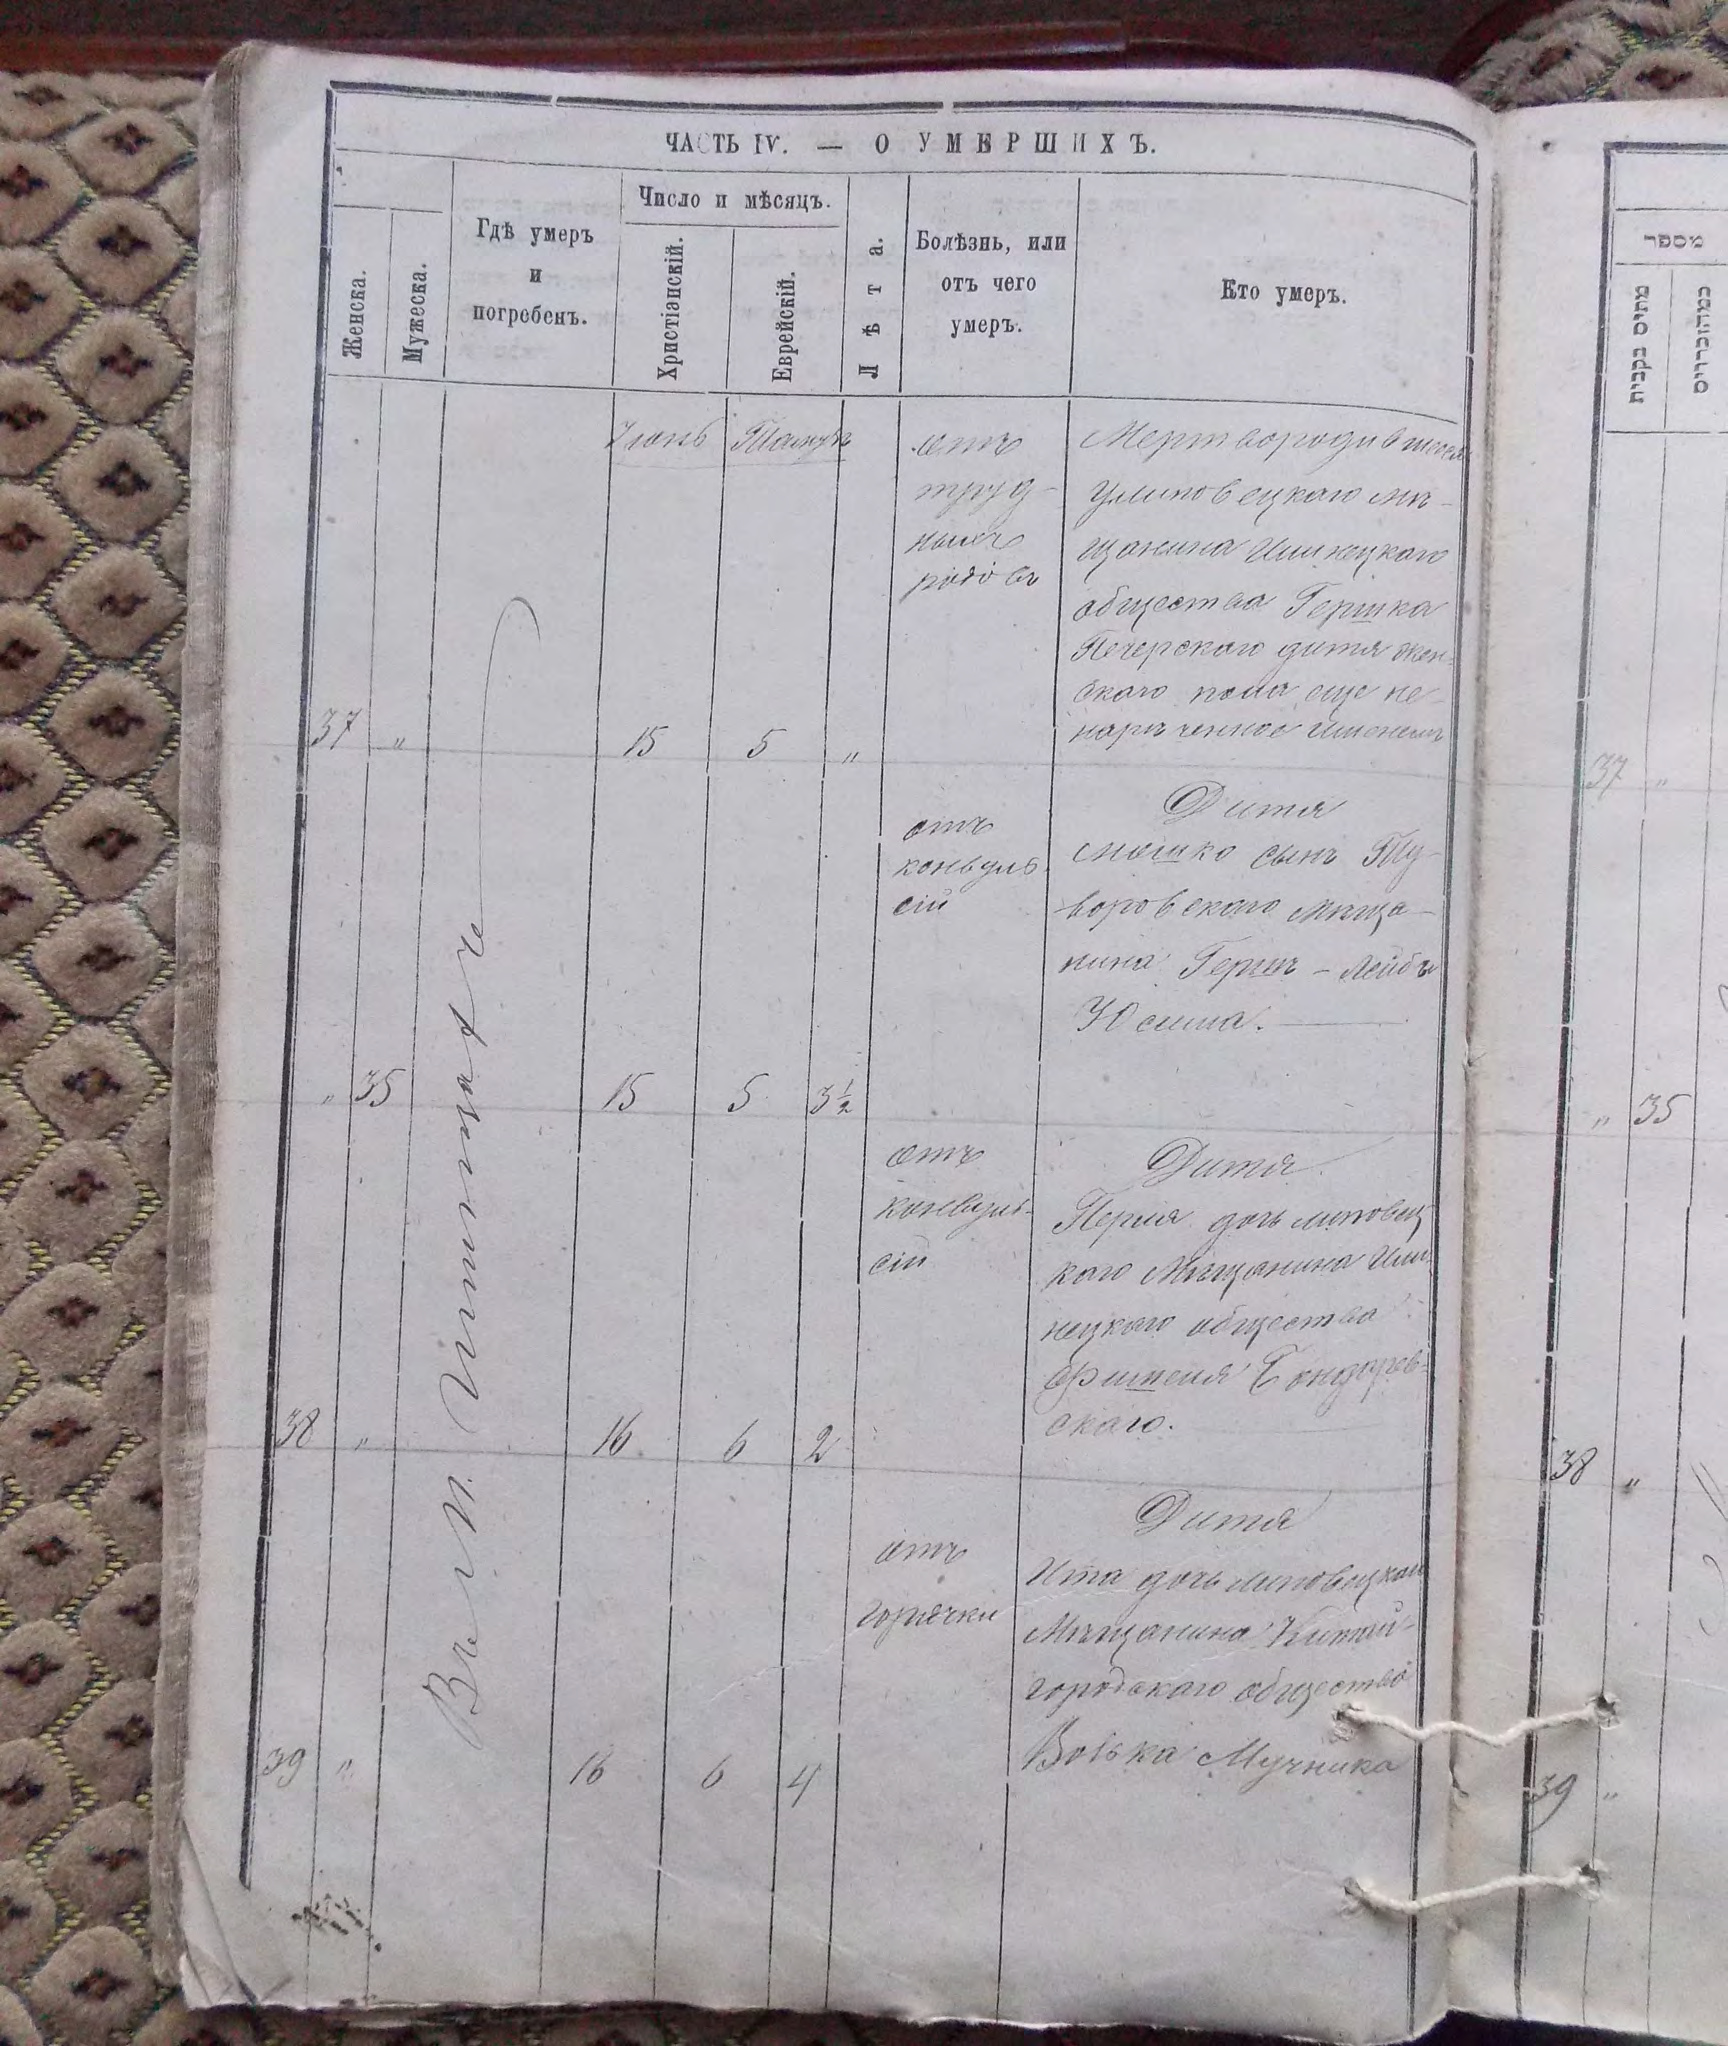 ЧАСТЬ IV. — О УМЕРШИХЪ.
Женска.
Мужеска.
Гдѣ умеръ
и
погребенъ.
Число и мѣсяцъ.
Христіанскій.
Еврейскій.
Лѣта.
Болѣзнь, или
отъ чего
умеръ.
Кто умеръ.
Въ м. Ильинцахъ
Іюнь Тамузъ
отъ
труд-
ныхъ
родовъ
Мертвородившееся
Липовецкаго мѣ-
щанина Илинецкаго
общества Гершка
Печерскаго дитя жен-
скаго пола еще не-
нареченное именемъ
37 „ 15 5 „
отъ
конвуль-
сій
Дитя
Мошко сынъ
воровскаго мѣща-
нина Гершъ-Лейбъ
Юсима.
„ 35 15 5 3½
отъ
конвуль-
сій
Дитя
Перля дочь липовец
каго мѣщанина Или-
нецкаго общества
Фишеля Бондарев-
скаго.
38 „ 16 6 2
отъ
горячки
Дитя
Ита дочь липовецкаго
Мѣщанина Китай-
городскаго общества
Волька Мучника
39 „ 16 6 4
מספר
37 „
„ 35
38 „
39 „